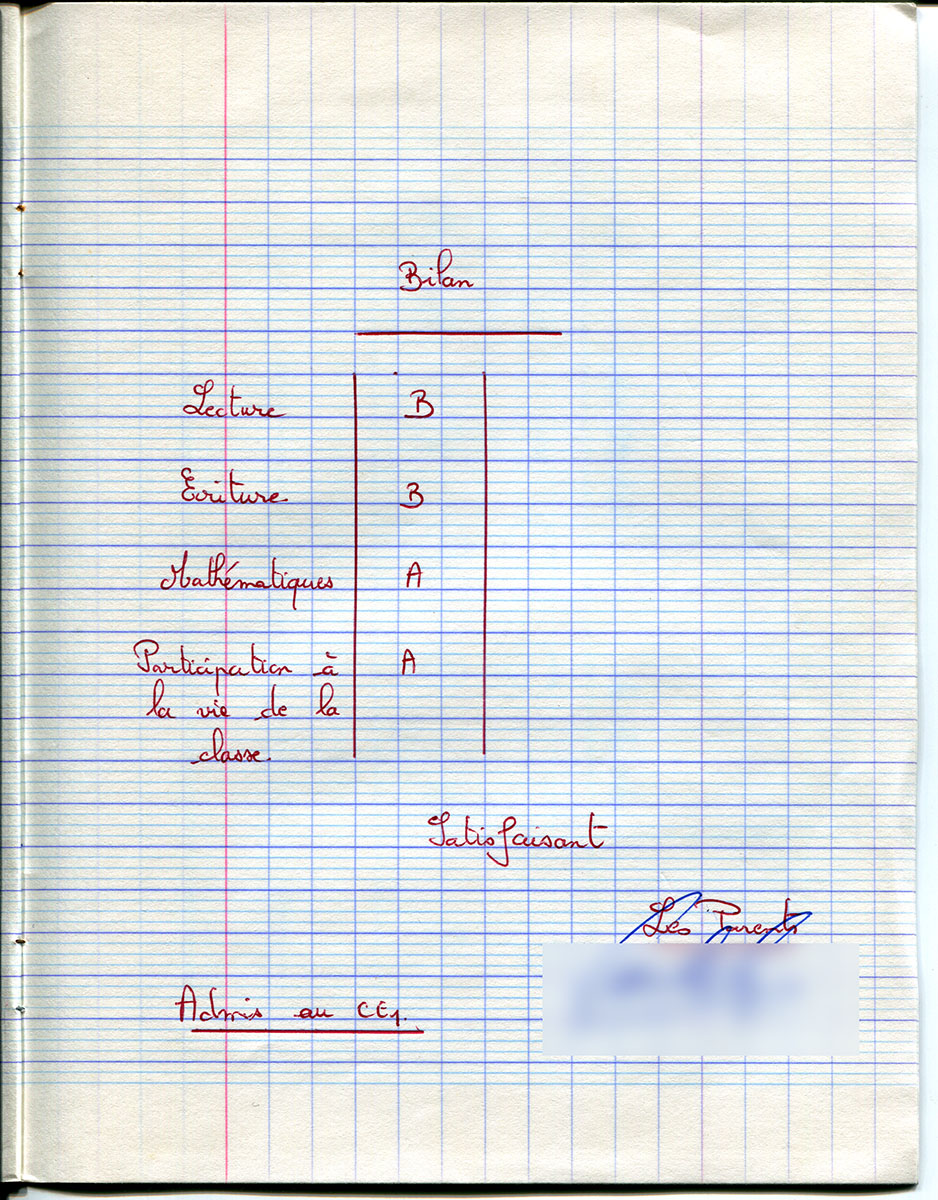 Bilan
Lecture B
Ecriture B
Mathématiques A
Participation à A
la vie de la
classe.
Satisfaisant
Les Parents
Admis au CE1.